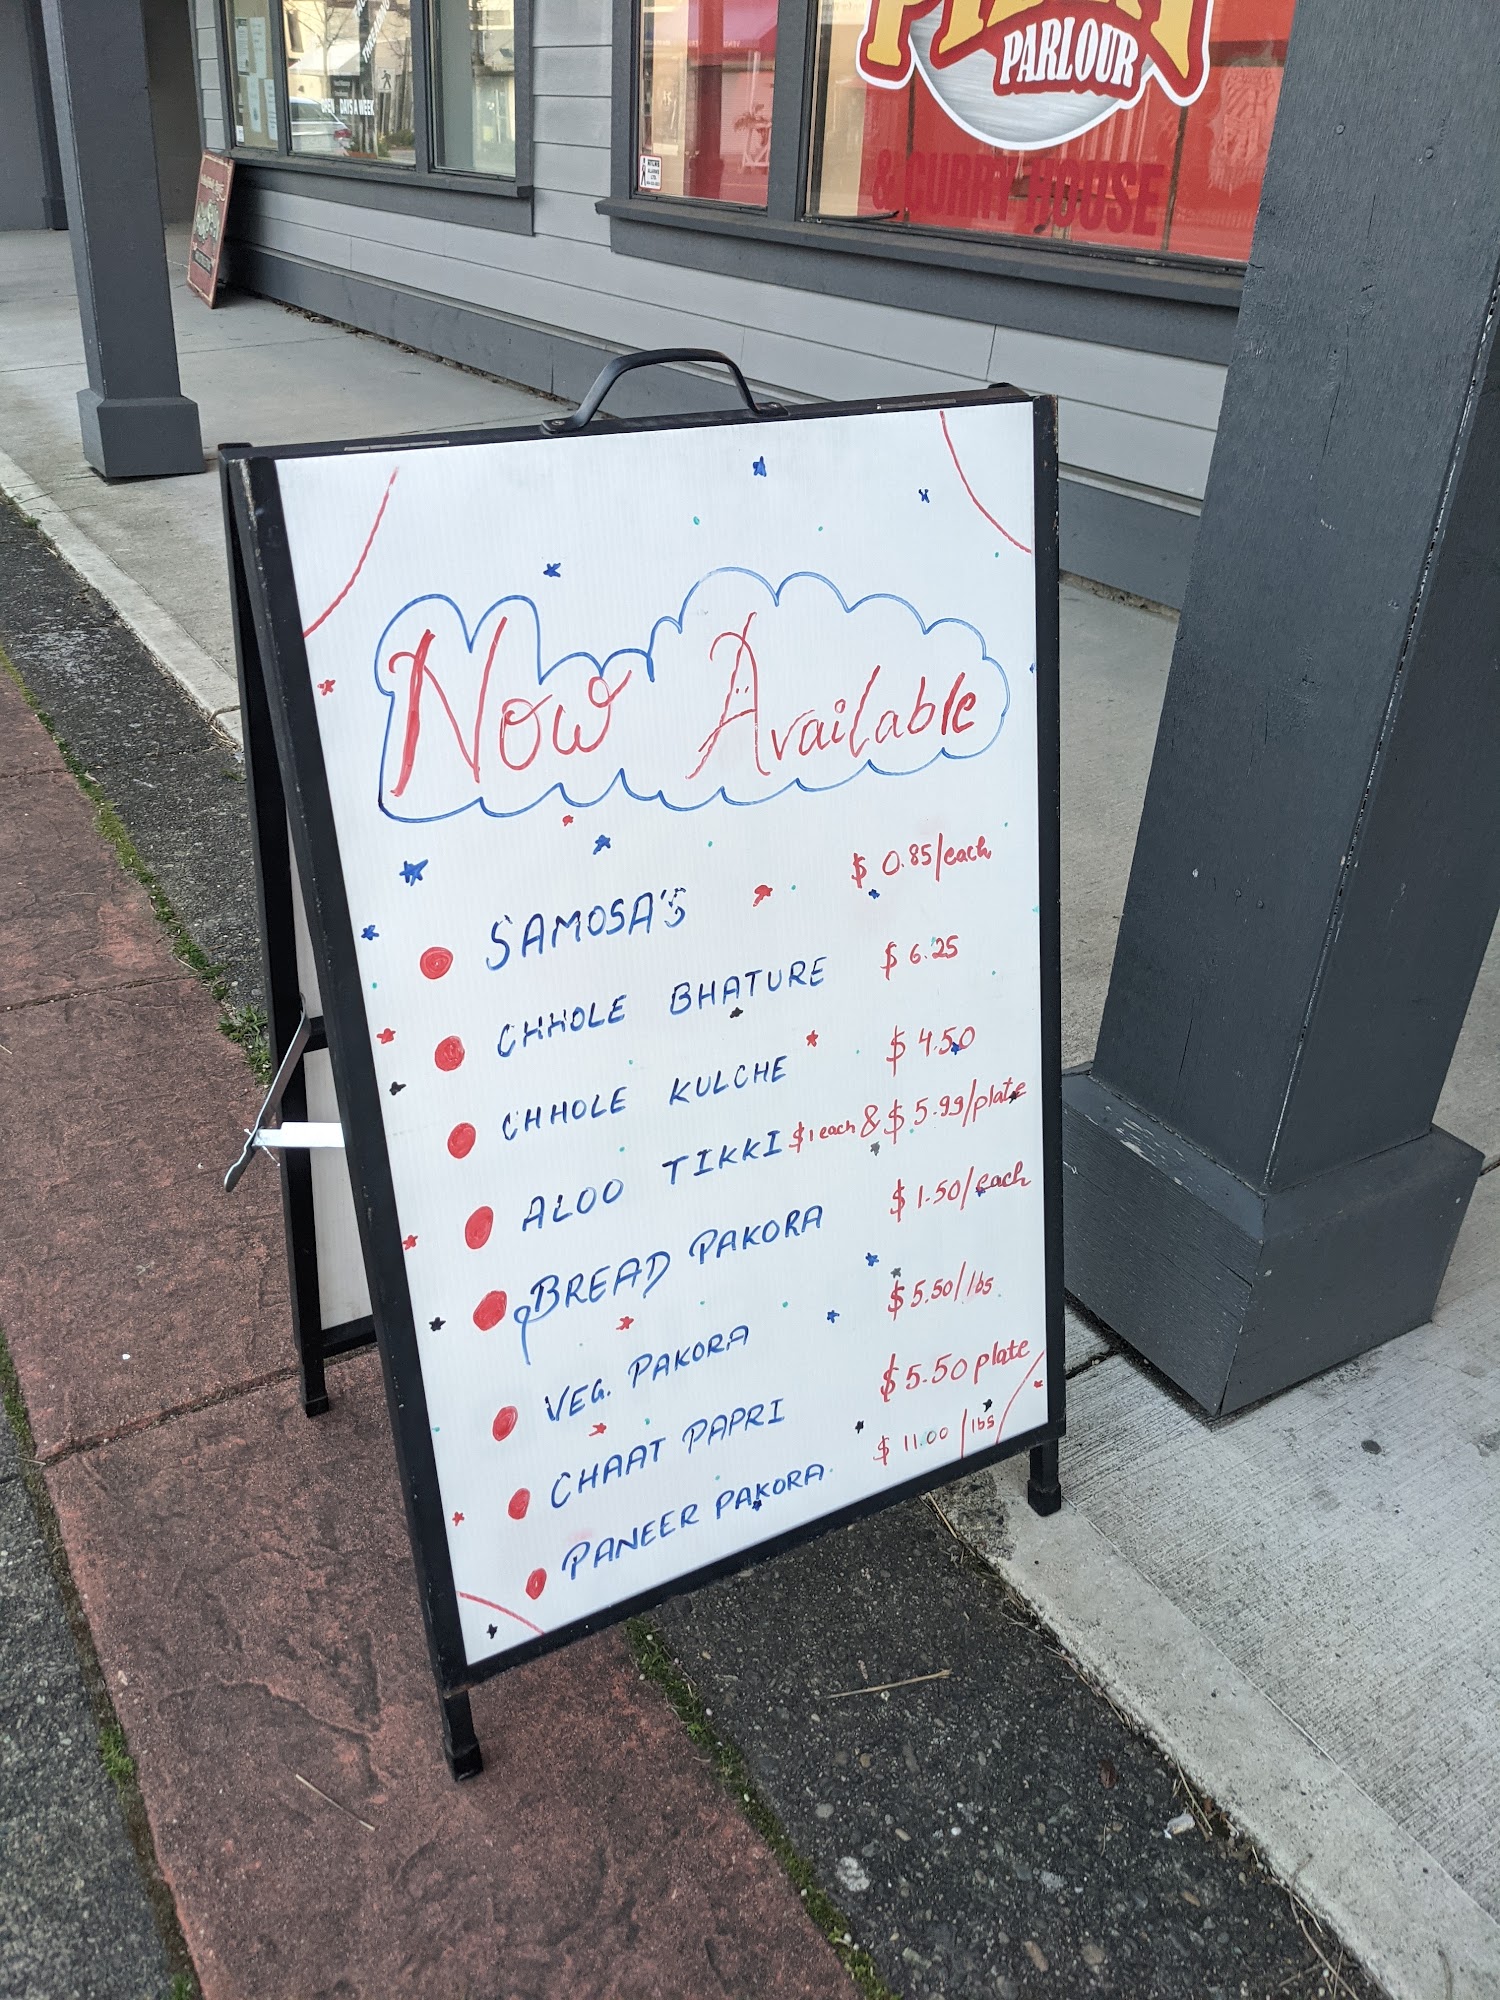 PARLOUR
& CURRY HOUSE
OPEN DAYS A WEEK
Now Available
SAMOSA'S $ 0.85/each
CHHOLE BHATURE $ 6.25
CHHOLE KULCHE $ 4.50
ALOO TIKKI $1 each & $ 5.99/plate
BREAD PAKORA $ 1.50/each
VEG. PAKORA $ 5.50/lbs.
CHAAT PAPRI $ 5.50 plate
PANEER PAKORA. $ 11.00 /lbs